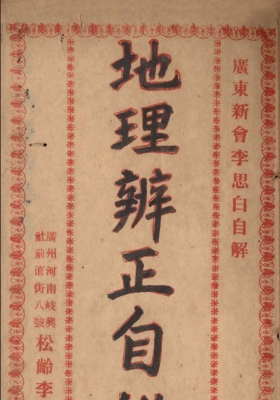 廣東新會李思白自解
地理辨正自
廣州河南岐興
社前直街八號
松齡李